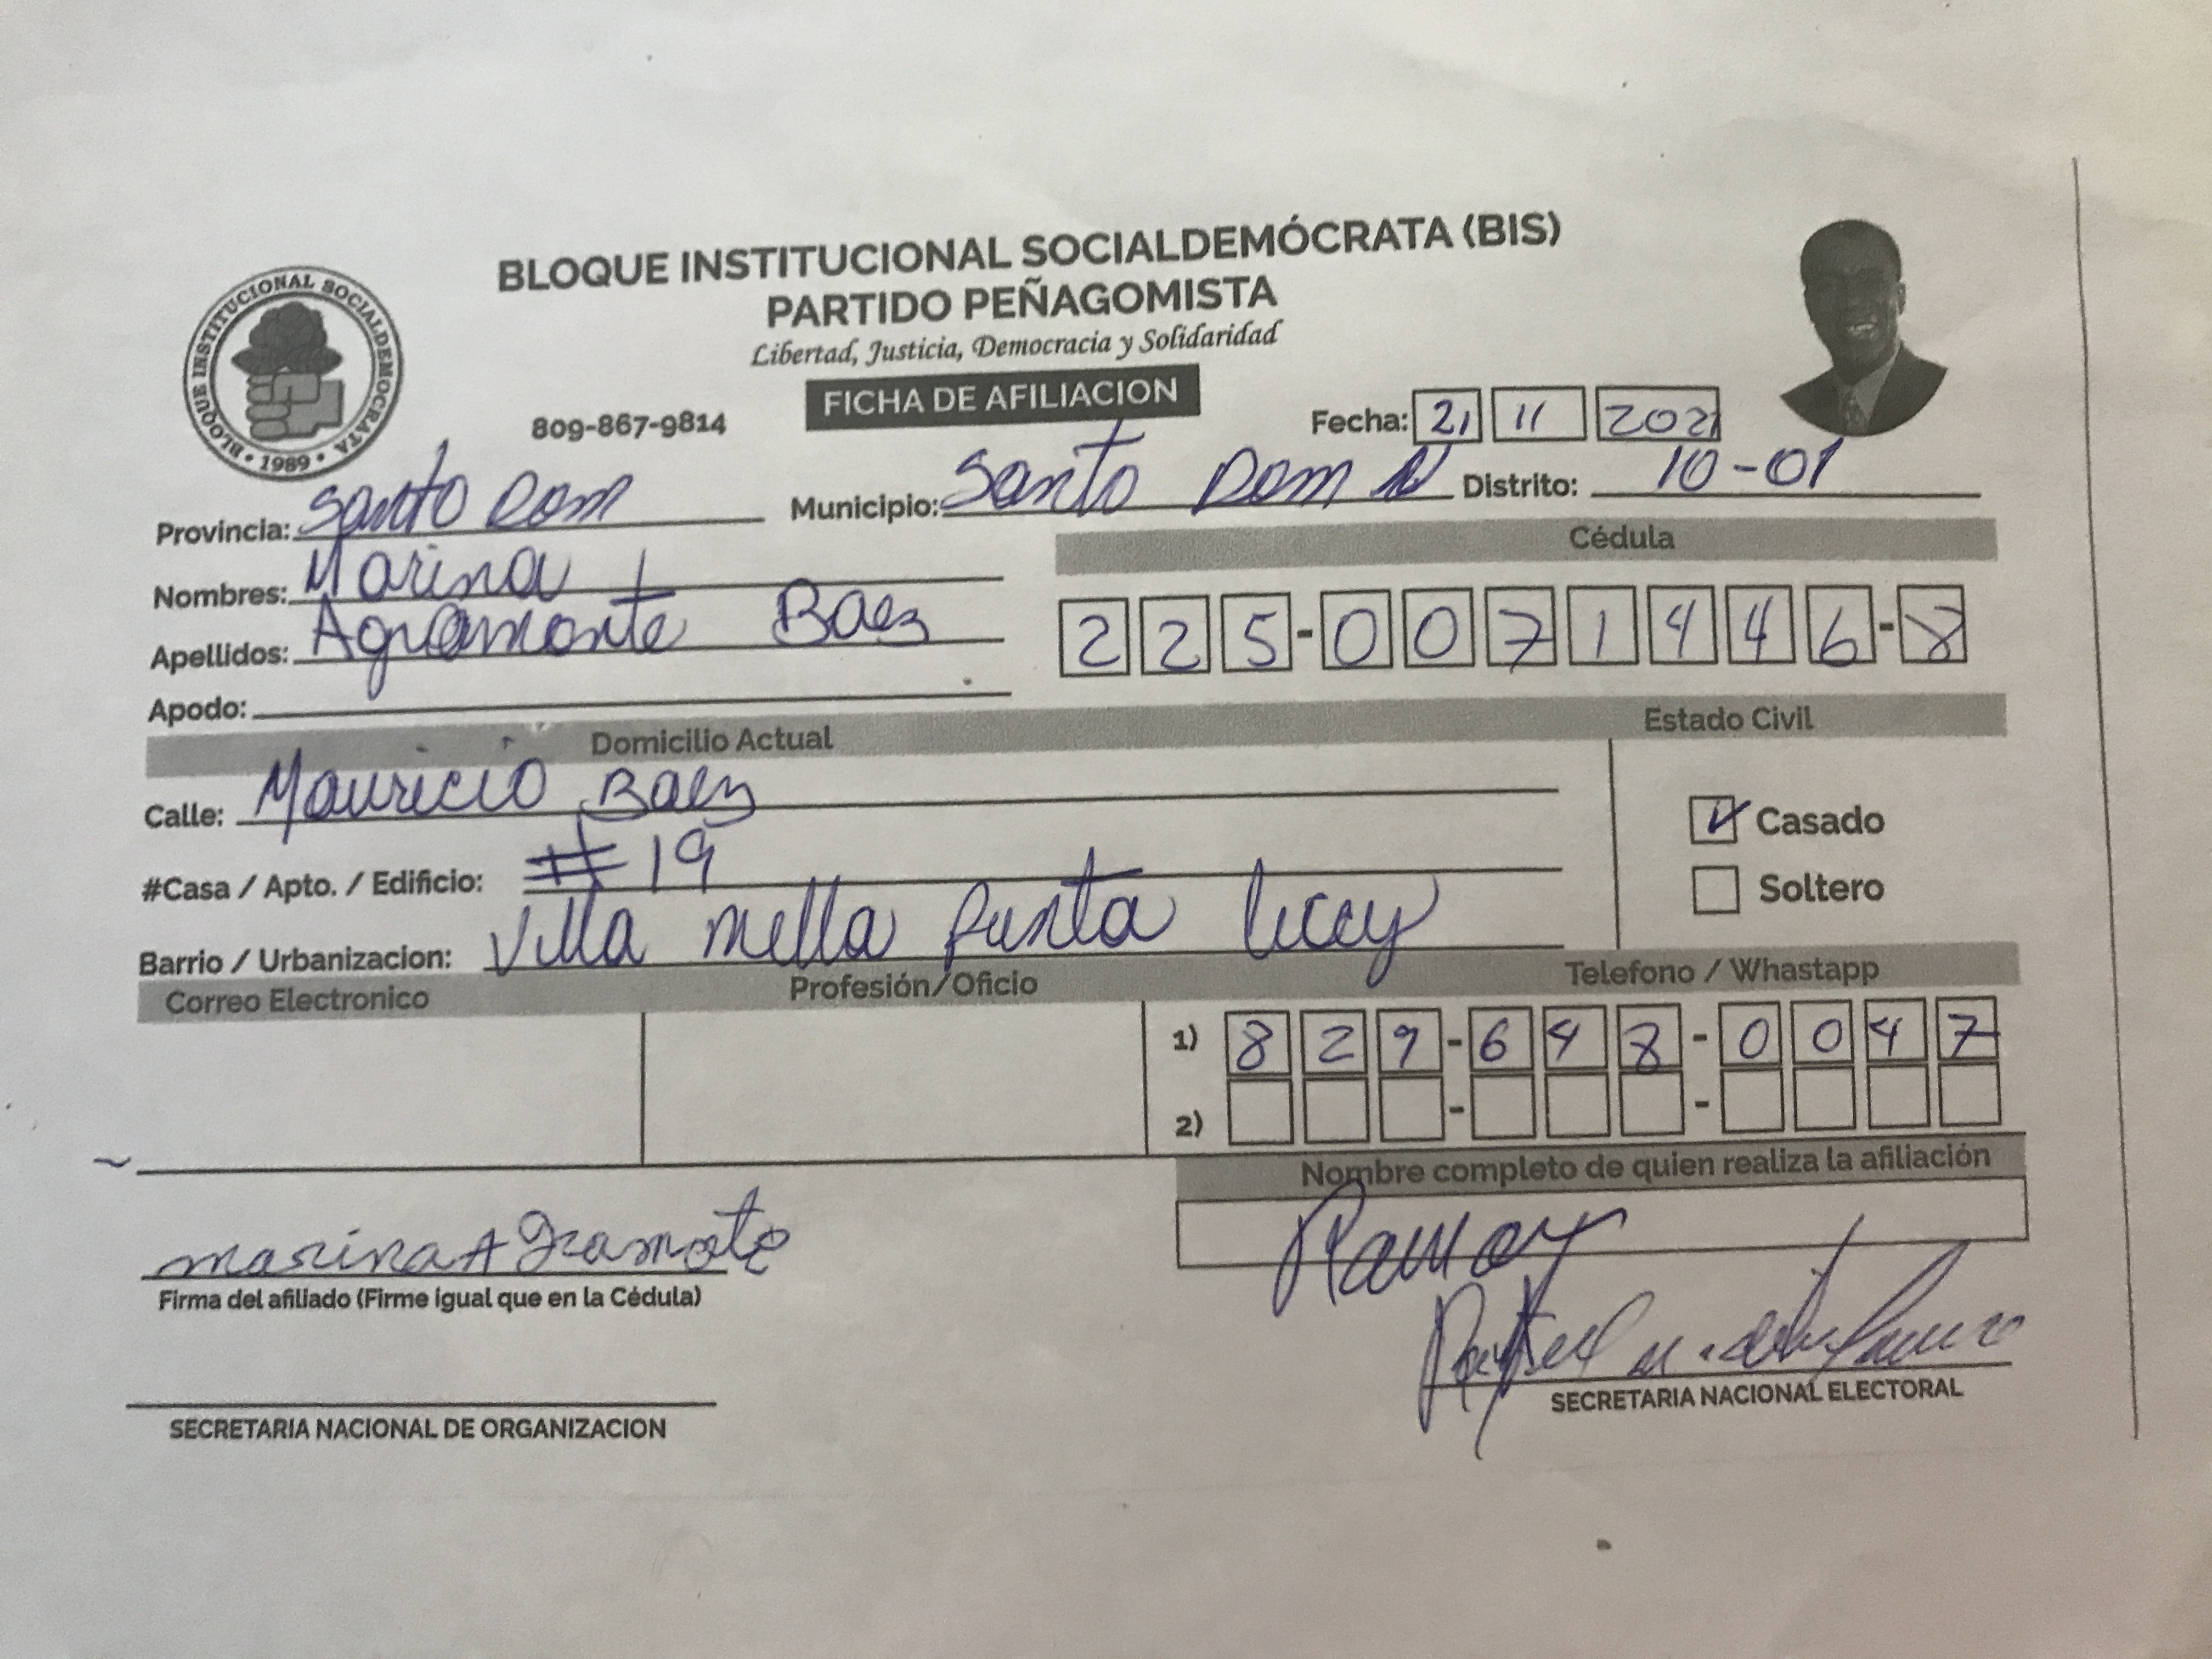 BLOQUE INSTITUCIONAL SOCIALDEMÓCRATA (BIS)
PARTIDO PEÑAGOMISTA
Libertad, Justicia, Democracia y Solidaridad
BLOQUE INSTITUCIONAL SOCIALDEMOCRATA • 1989 •
809-867-9814
FICHA DE AFILIACION
Fecha: 21 11 2021
Provincia: Santo Dom Municipio: Santo Dom N Distrito: 10-01
Nombres: Marina
Apellidos: Agramonte Baez
Apodo:
Cédula
225-0071446-8
Domicilio Actual Estado Civil
Calle: Mauricio Baez
#Casa / Apto. / Edificio: #19
Barrio / Urbanizacion: Villa mella Punta
Casado
Soltero
Correo Electronico Profesión/Oficio Telefono / Whastapp
1) 829-648-0047
2) - -
Nombre completo de quien realiza la afiliación
marina Agramote
Firma del afiliado (Firme igual que en la Cédula)
Rafael
SECRETARIA NACIONAL ELECTORAL
SECRETARIA NACIONAL DE ORGANIZACION